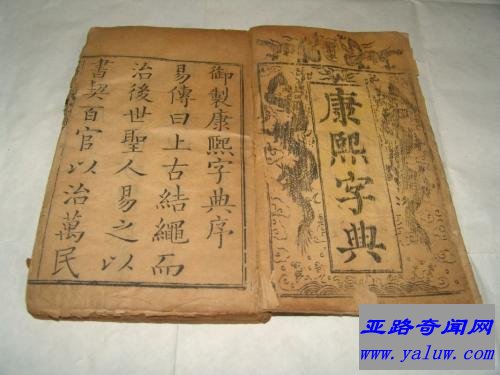 康熙字典
御製康熙字典序
易傳曰上古結繩而
治後世聖人易之以
書契百官以治萬民
亚路奇闻网
www.yaluw.com